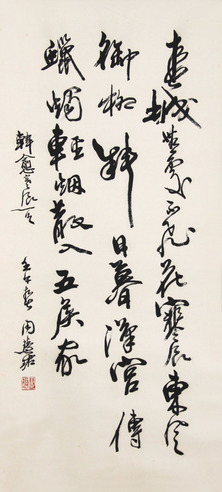 春城無處不飛花寒食東風
御柳斜日暮漢宮傳
蠟燭輕烟散入五侯家
韓
壬午春周慧珺